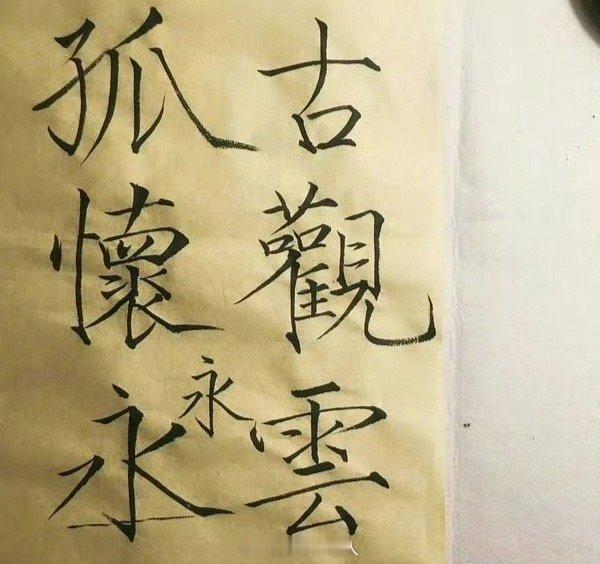 古觀雲
孤懷永
永